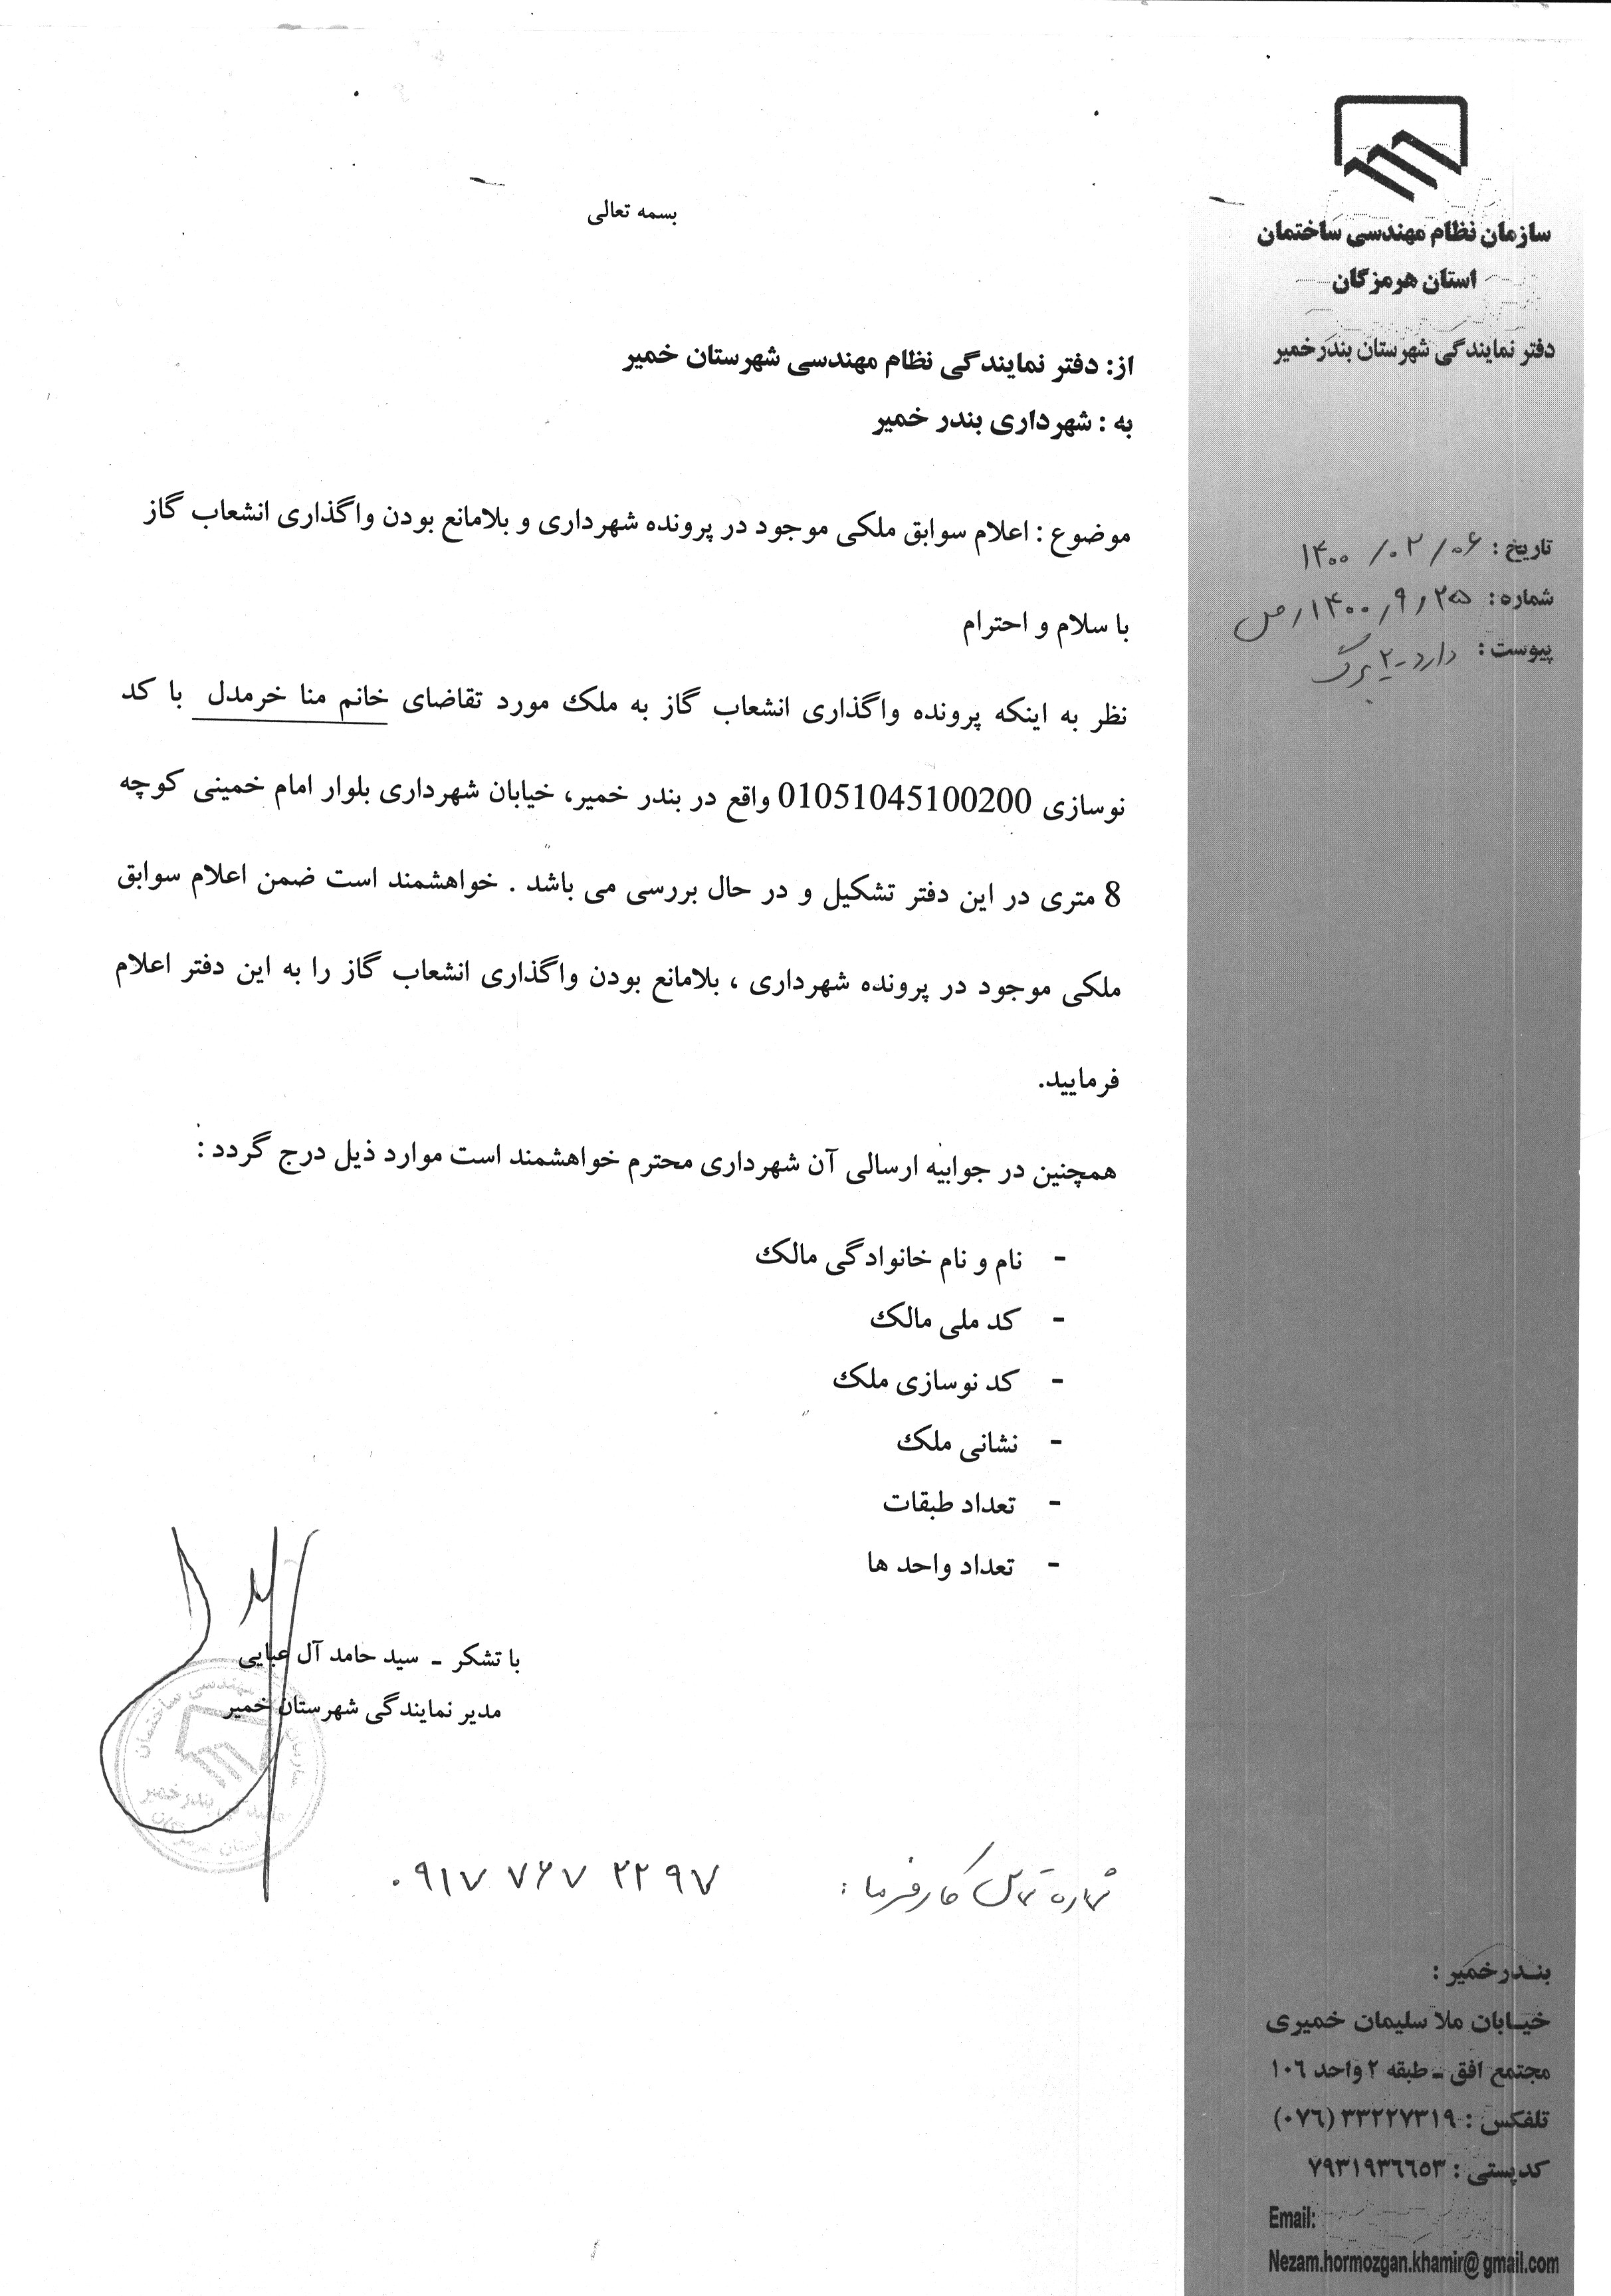 سازمان نظام مهندسی ساختمان
استان هرمزگان
دفتر نمایندگی شهرستان بندرخمیر
تاریخ : ۱۴۰۰/۰۲/۰۶
شماره : ۲۵/۹/۱۴۰۰/ص
پیوست : دارد-۲ برگ
بسمه تعالی
از: دفتر نمایندگی نظام مهندسی شهرستان خمیر
به : شهرداری بندر خمیر
موضوع : اعلام سوابق ملکی موجود در پرونده شهرداری و بلامانع بودن واگذاری انشعاب گاز
با سلام و احترام
نظر به اینکه پرونده واگذاری انشعاب گاز به ملک مورد تقاضای خانم منا خرمدل با کد
نوسازی 01051045100200 واقع در بندر خمیر، خیابان شهرداری بلوار امام خمینی کوچه
8 متری در این دفتر تشکیل و در حال بررسی می باشد . خواهشمند است ضمن اعلام سوابق
ملکی موجود در پرونده شهرداری ، بلامانع بودن واگذاری انشعاب گاز را به این دفتر اعلام
فرمایید.
همچنین در جوابیه ارسالی آن شهرداری محترم خواهشمند است موارد ذیل درج گردد :
- نام و نام خانوادگی مالک
- کد ملی مالک
- کد نوسازی ملک
- نشانی ملک
- تعداد طبقات
- تعداد واحد ها
با تشکر ـ سید حامد آل عبایی
مدیر نمایندگی شهرستان خمیر
شماره تماس کارفرما : ۰۹۱۷ ۷۶۷ ۲۲۹۷
بندرخمیر :
خیابان ملا سلیمان خمیری
مجتمع افق ـ طبقه ۲ واحد ۱۰۶
تلفکس : ۳۳۲۲۷۳۱۹ (۰۷۶)
کدپستی : ۷۹۳۱۹۳۶۶۵۳
Email:
Nezam.hormozgan.khamir@gmail.com